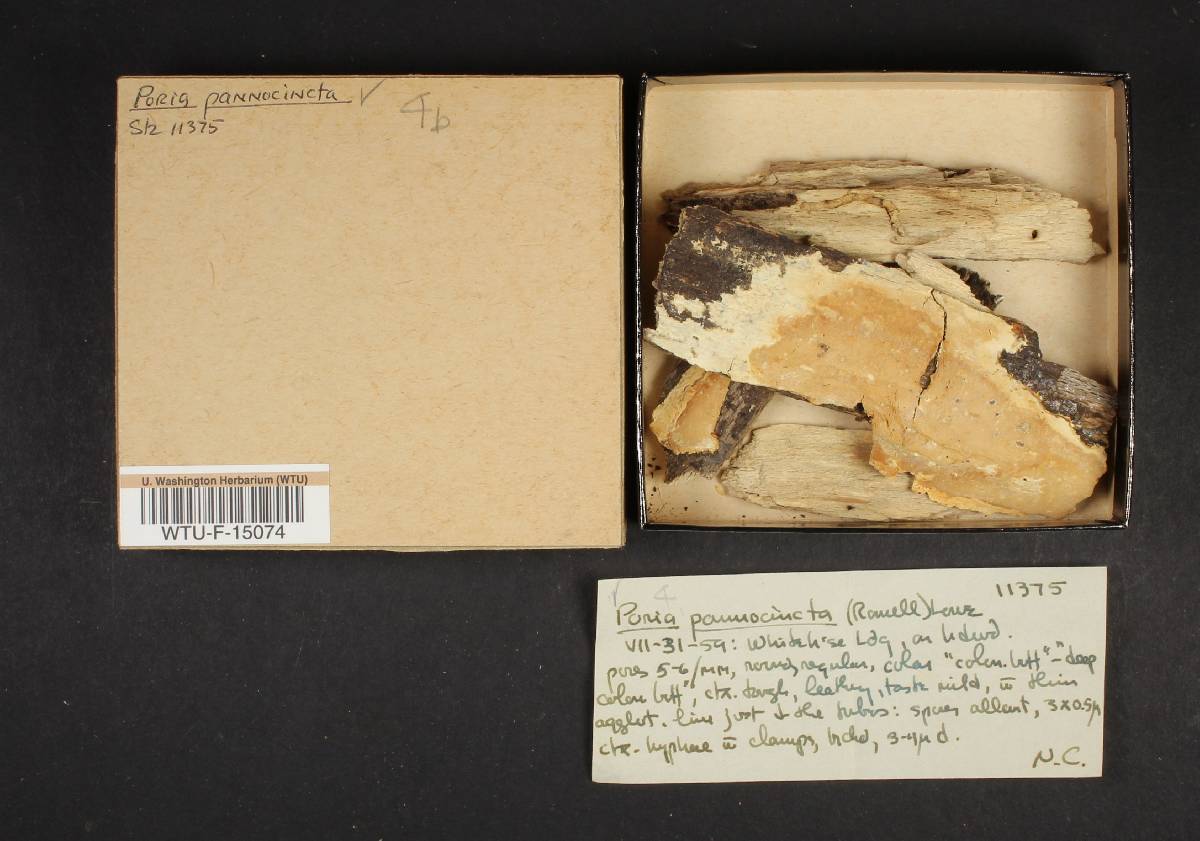 Poria pannocincta ✓ 4b
Stz 11375
U. Washington Herbarium (WTU)
WTU-F-15074
✓ 4 11375
Poria pannocincta (Romell) Lowe
VII-31-59: Whiteh'se Ldg, on hdwd.
pores 5-6/MM, round, regular, color "colon. buff"-"deep
colon. buff", ctx. tough, leathery, taste mild, w̄ thin
agglut. line just the tubes: spores allant, 3x0.5µ
ctx. hyphae w̄ clamps, brchd, 3-4µ d.
N.C.